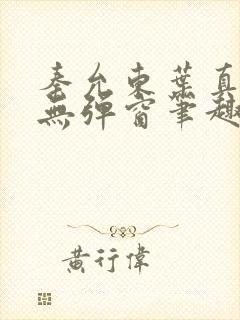 秦允東葉真
無彈窗筆趣
黃行偉